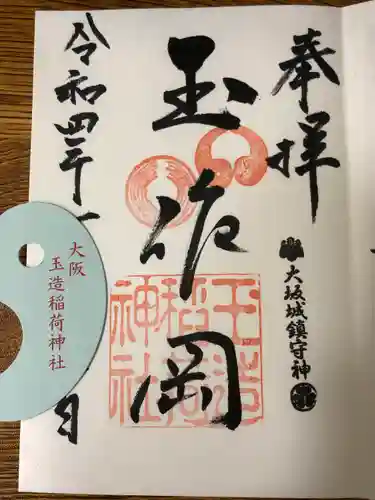 奉拝
大坂城鎮守神
玉作岡
玉造
稲荷
神社
令和四年一
日
大阪
玉造稲荷神社